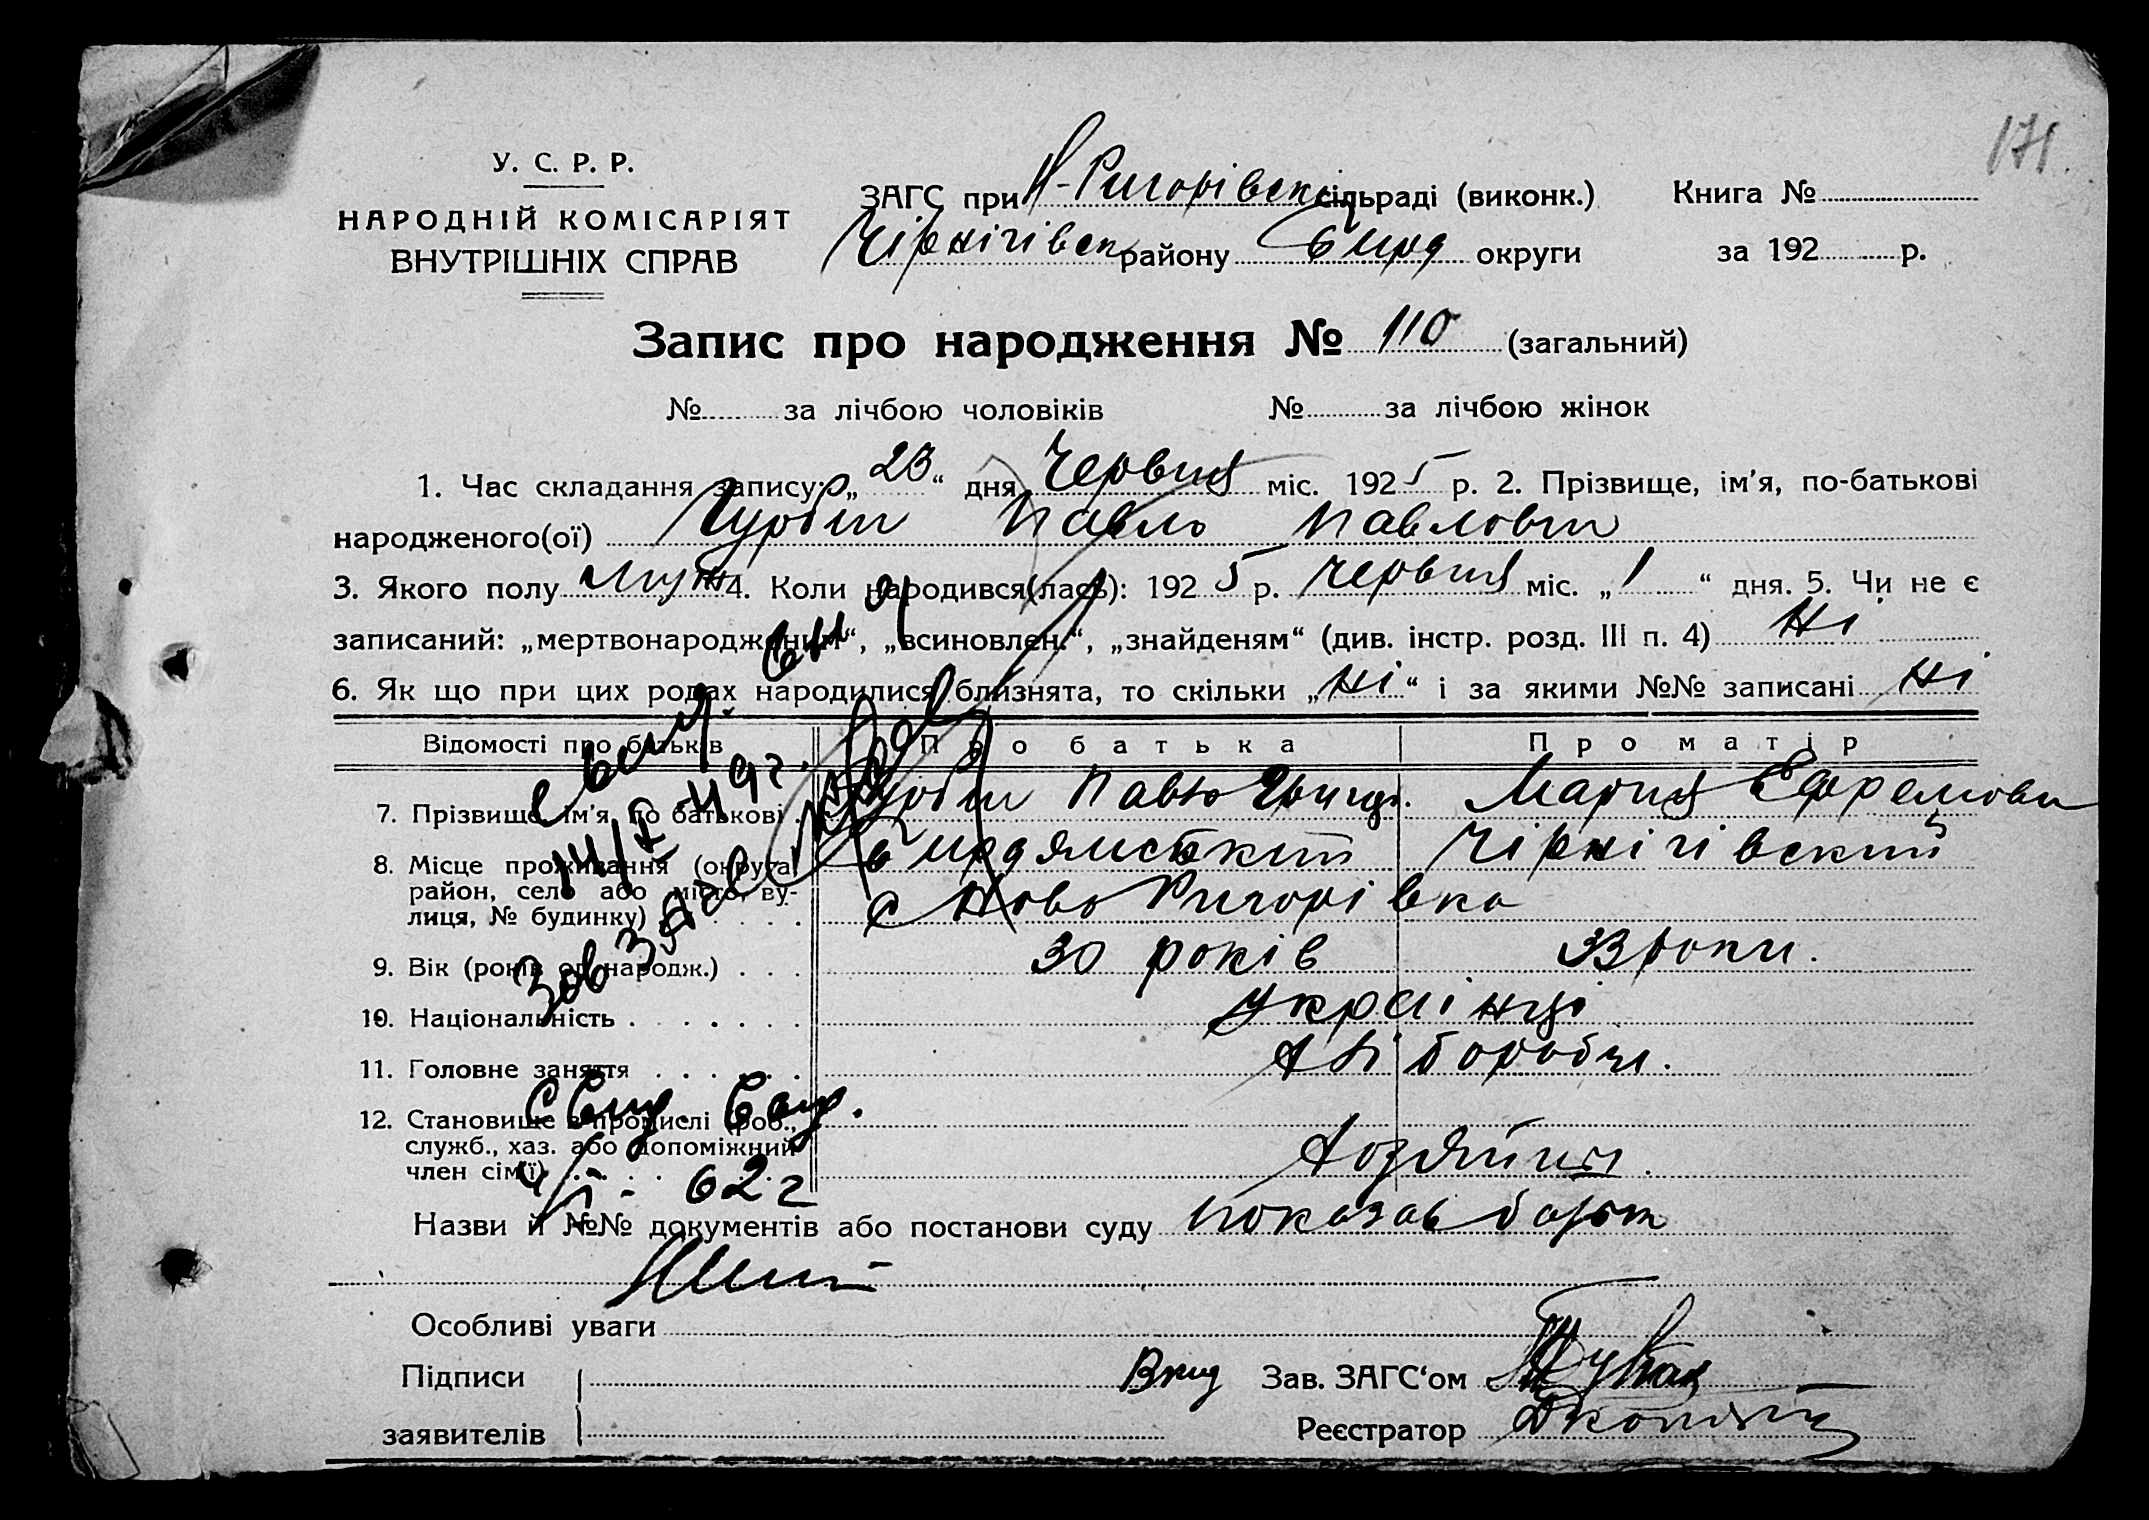 171.
У. С. Р. Р.
НАРОДНІЙ КОМІСАРІЯТ
ВНУТРІШНІХ СПРАВ
ЗАГС при Н-Ригорівск сільраді (виконк.) Книга №
Чірнігівск району округи за 192 р.
Запис про народження № 110 (загальний)
№ за лічбою чоловіків № за лічбою жінок
1. Час складання запису: „23“ дня Червня міс. 1925 р. 2. Прізвище, ім'я, по-батькові
народженого(ої) Павло Павлович
3. Якого полу муж 4. Коли народився(лась): 1925 р. червня міс. „1“ дня. 5. Чи не є
записаний: „мертвонародженим“, „всиновлен.“, „знайденям“ (див. інстр. розд. III п. 4) Ні
6. Як що при цих родах народилися близнята, то скільки „Ні“ і за якими №№ записані Ні
Відомості про батьків Про батька Про матір
7. Прізвище, ім'я, по батькові Павло Мария Ефремовн
8. Місце проживання (округа, район, село або місто, ву-лиця, № будинку) Бирдянський Чірнігівский
с Ново Ригорівка
9. Вік (років од народж.) 30 років 33 роки.
10. Національність Украінці
11. Головне заняття Хліборобзи.
12. Становище в промислі (роб.,
служб., хаз. або допоміжний
член сім'ї) Хозяїни.
Назви й №№ документів або постанови суду показав батьк
Особливі уваги
Підписи Зав. ЗАГС'ом
заявителів Реєстратор
14/X 49г.
62 г